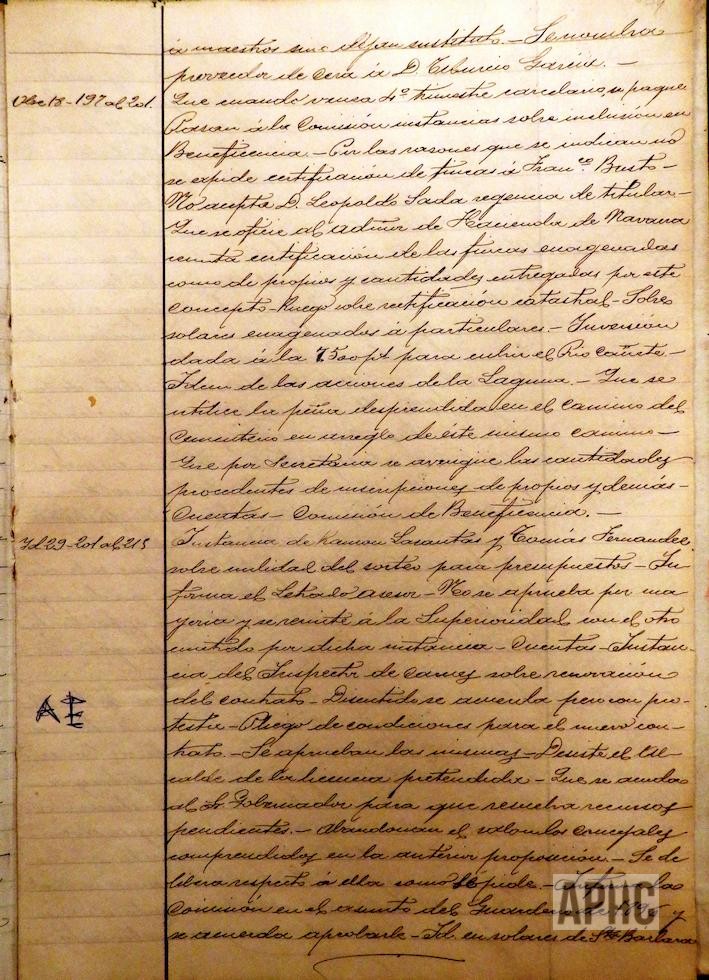 á maestros sino dejan sustituto. – Se nombra
proveedor de cera á D. Tiburcio García. –
Dbre 18 - 197 al 201.
Que cuando venza 4º trimestre carcelario, se pague.
Pasan á la Comisión instancias sobre inclusión en
Beneficencia. – Por las razones que se indican no
se expide certificación de fincas á Franco. Busto –
No acepta D. Leopoldo Sada regencia de titular. –
Que se oficie al Admor de Hacienda de Navarra
remita certificación de las fincas enagenadas
como de propios y cantidades entregadas por este
concepto – Ruego sobre rectificación catastral – Sobre
solares enagenados á particulares – Inversión
dada á la 7500 pts para cubrir el Río Cañete –
Idem de las acciones de la Laguna – Que se
utilice la peña desprendida en el camino del
Cementerio en arreglo de éste mismo camino –
Que por Secretaría se averigüe las cantidades
procedentes de inscripciones de propios y demás –
Cuentas – Comisión de Beneficencia. –
Id 29 - 201 al 215
Instancia de Ramon Lasantas y Tomás Fernandez
sobre nulidad del sorteo para presupuestos – In-
forma el Letrado asesor – No se aprueba por ma
yoria y se remite á la Superioridad con el otro
emitido por dicha instancia – Cuentas – Instan-
cia del Inspector de carnes sobre renovación
del contrato – Discutido se acuerda pero con pro-
testa – Pliego de condiciones para el nuevo con-
trato – Se aprueban las mismas – Desiste el Al
calde de la licencia pretendida – Que se acuda
al Sr Gobernador para que resuelva recursos
pendientes. – Abandonan el salon los concejales
comprendidos en la anterior proposición. – Se de
libera respecto á ella como se pide. – la
Comisión en el asunto del y
se acuerda aprobarle – Id. en solares de Sta Barbara
AE
APHC